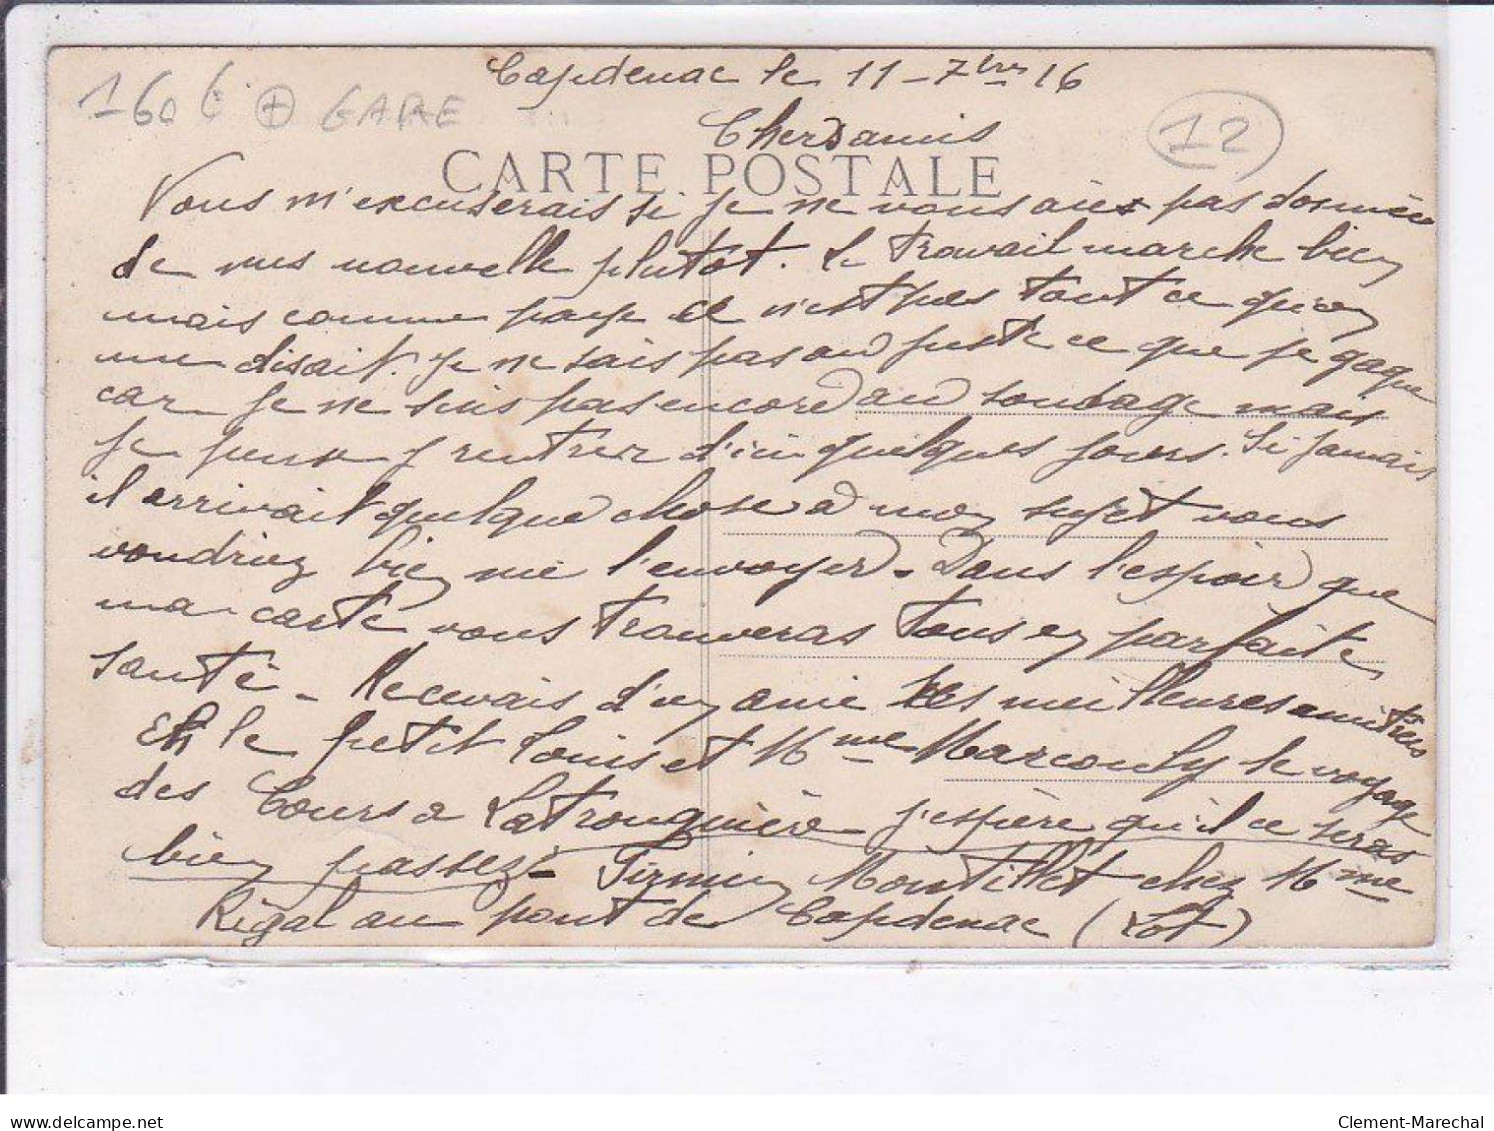 160 € + GARE
12
Capdenac le 11-7bre 16
Chers amis
CARTE POSTALE
Vous m'excuserais si je ne vous aies pas données
de mes nouvelle plutôt. Le travail marche bien
mais comme paye ce n'est pas tout ce qu'on
me disait. Je ne sais pas au juste ce que je gagne
car je ne suis pas encore au soudage mais
je pense y rentrer d'ici quelques jours. Si jamais
il arrivait quelque chose à mon sujet vous
voudriez bien me l'envoyer. Dans l'espoir que
ma carte vous trouveras tous en parfaite
santé - Recevais d'un amie les meilleures amitiées
Eh le petit Louis et Mme Marcouly le voyage
des Cours a Latronquière j'espère qu'il ce seras
bien passez - Firmin Montillet chez Mme
Rigal au pont de Capdenac (Lot)
www.delcampe.net
Clement-Marechal